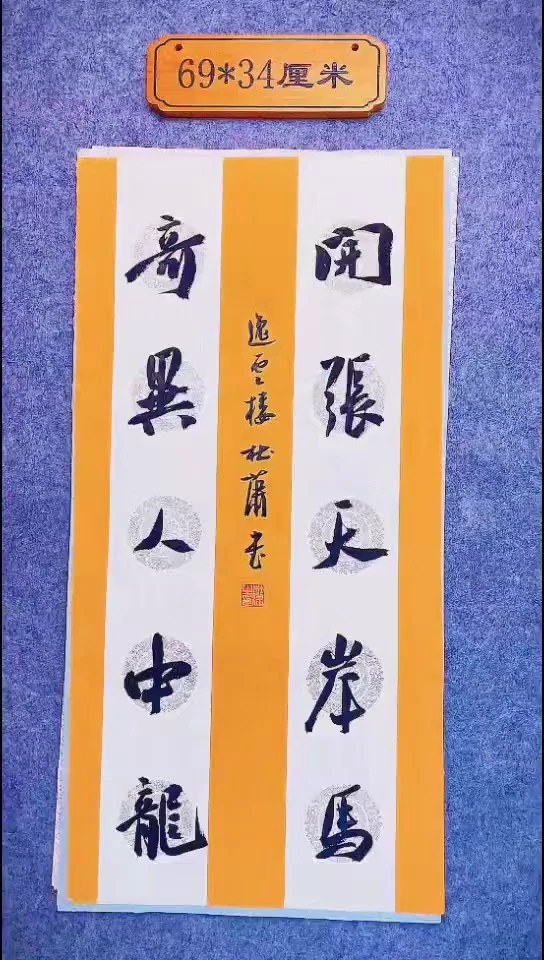 69*34厘米
開張天岸馬
奇異人中龍
逸雲楼杜蕭书